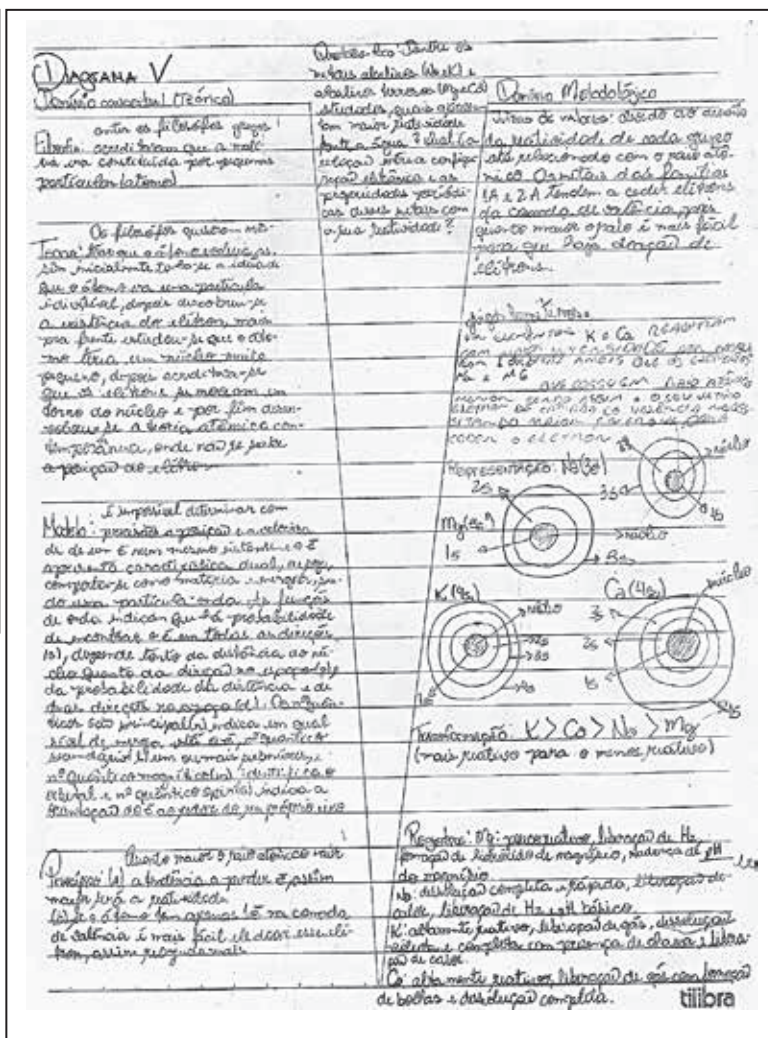 DIAGRAMA V
Domínio conceitual (Teórico)
antes os filósofos gregos
Filosofia: acreditavam que a maté-
ria era constituída por pequenas
partículas (átomo)
Os filósofos queriam
Teoria: que o átomo
sim inicialmente a ideia de
que o átomo era uma partícula
indivisível, depois descobriu-se
a existência do elétron, mais
pra frente estudou-se que o áto-
mo teria um núcleo muito
pequeno, depois acreditou-se
que os elétrons se moviam em
torno do núcleo e por fim desen-
volveu-se a teoria atômica con-
temporânea, onde não se sabe
a posição do elétron
É impossível determinar com
Modelo: precisão a posição e a velocida-
de de um é num mesmo
apresenta característica dual, ou seja,
comporta-se como matéria e energia, sen-
do uma partícula-onda. As funções
de onda indicam que há probabilidade
de encontrar o é em todas as direções
depende tanto da distância do nú-
cleo quanto da direção no espaço
da probabilidade da distância e de
duas direções no espaço (d). Os nº quân-
ticos são principal (n) indica em qual
nível de energia está o é, nº quântico
secundário (l) um ou mais subníveis, e
nº quântico magnético (m) identifica o
orbital e nº quântico spin (s) indica a
orientação do é ao redor do seu próprio eixo
Quanto maior o raio atômico mai-
Princípios: (1) a tendência a perder é, assim
maior será a reatividade
(2) se o átomo tem apenas 1 é na camada
de valência é mais fácil ele doar esse elé-
tron, assim reagindo mais
Questão foco: Dentre os
metais alcalinos (Na e K) e
alcalinos terrosos (Mg e Ca)
estudados, quais
tem maior reatividade
frente a água? Qual (a
relação) entre a configu-
ração eletrônica e as
propriedades periódi-
cas desses metais com
a sua reatividade?
Domínio Metodológico
Juízos de valores: devido ao
da reatividade de cada grupo
está relacionado com o raio atô-
mico. Os metais das famílias
1A e 2A tendem a ceder elétrons
da camada de valência, pois
quanto maior o raio é mais fácil
para que haja doação de
elétrons.
K e Ca REAGIRAM
COM MAIOR INTENSIDADE
QUE OS ELEMENTOS
Na e MG
QUE POSSUEM RAIO ATÔMICO
MENOR, SENDO ASSIM O SEU ÚLTIMO
ELÉTRON DA CAMADA DE VALÊNCIA
CEDER O ELÉTRON
Representação: Na(3s)
2s
núcleo
3s
1s
Mg(3s²)
2s
1s
núcleo
3s
K(4s)
núcleo
2s
3s
4s
1s
Ca(4s)
núcleo
3s
2s
1s
4s
Transformação: K > Ca > Na > Mg
(mais reativo para o menos reativo)
Registros: Mg: pouco reativo, liberação de H₂,
formação de hidróxido de magnésio, mudança de pH
do magnésio
Na: dissolução completa e rápida, liberação de
calor, liberação de H₂ e pH básico
K: altamente reativo, liberação de gás, dissolução
e completa com presença de chama e libera-
ção de calor.
Ca: altamente reativo, liberação de gás com formação
de bolhas e dissolução completa.
tilibra